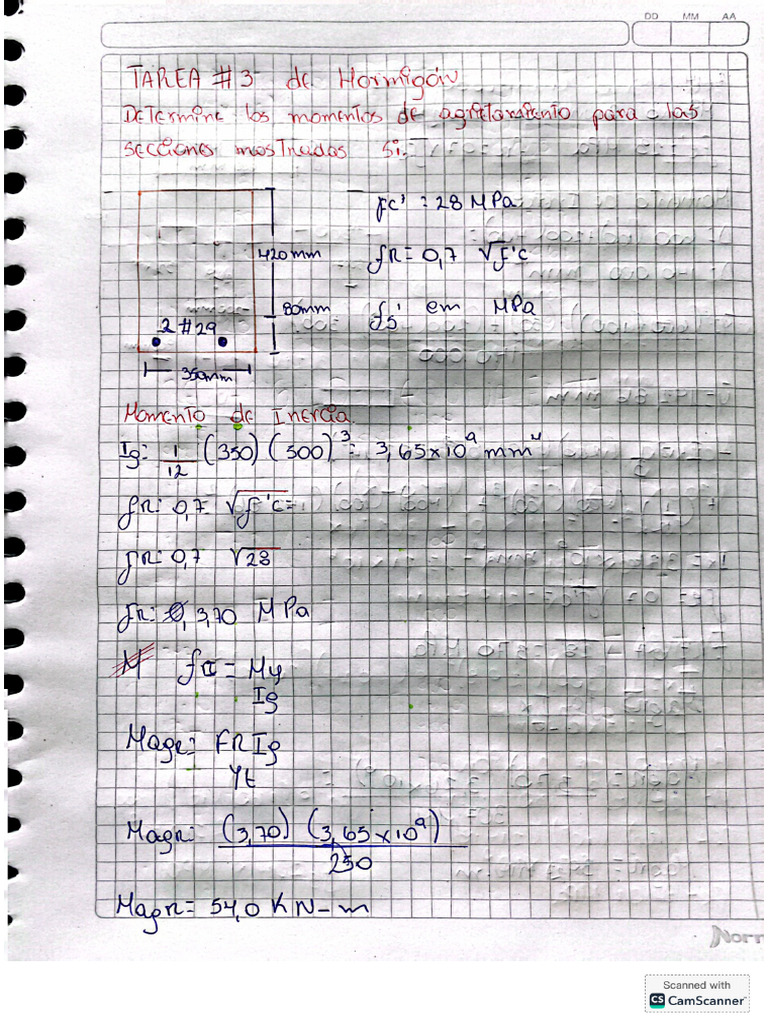 DD MM AA
TAREA #3 de Hormigón
Determine los momentos de agrietamiento para las
secciones mostradas si:
fc' = 28 MPa
420mm
fR = 0,7 √f'c
80mm
fs' en MPa
2 #29
350mm
Momento de Inercia.
Ig: 1/12 (350) (500)³ = 3,65x10⁹ mm⁴
fR: 0,7 √f'c =
fR: 0,7 √28
fR: 3,70 MPa
M fr = My/Ig
Magr: FR Ig/Yt
Magr: (3,70) (3,65x10⁹)/250
Magr = 54,0 KN-m
Norm
Scanned with
CS CamScanner